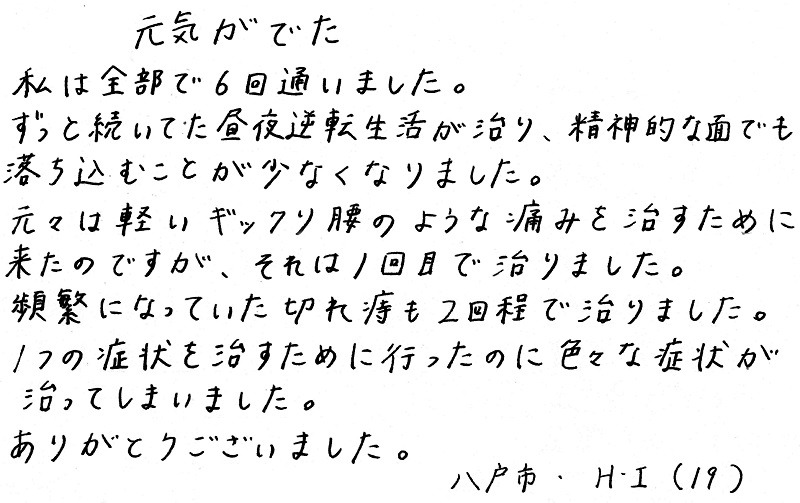 元気がでた
私は全部で6回通いました。
ずっと続いてた昼夜逆転生活が治り、精神的な面でも
落ち込むことが少なくなりました。
元々は軽いギックリ腰のような痛みを治すために
来たのですが、それは1回目で治りました。
頻繁になっていた切れ痔も2回程で治りました。
1つの症状を治すために行ったのに色々な症状が
治ってしまいました。
ありがとうございました。
八戸市・H・I(19)